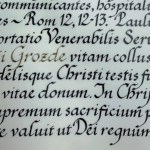 communicantes, hospitali
es ~ Rom 12, 12-13. Paul
ortatio Venerabilis Ser
i Groede vitam collus
delisque Christi testis f
vitae donum. In Chris
premum sacrificium p
e valuit ut Dei regnum